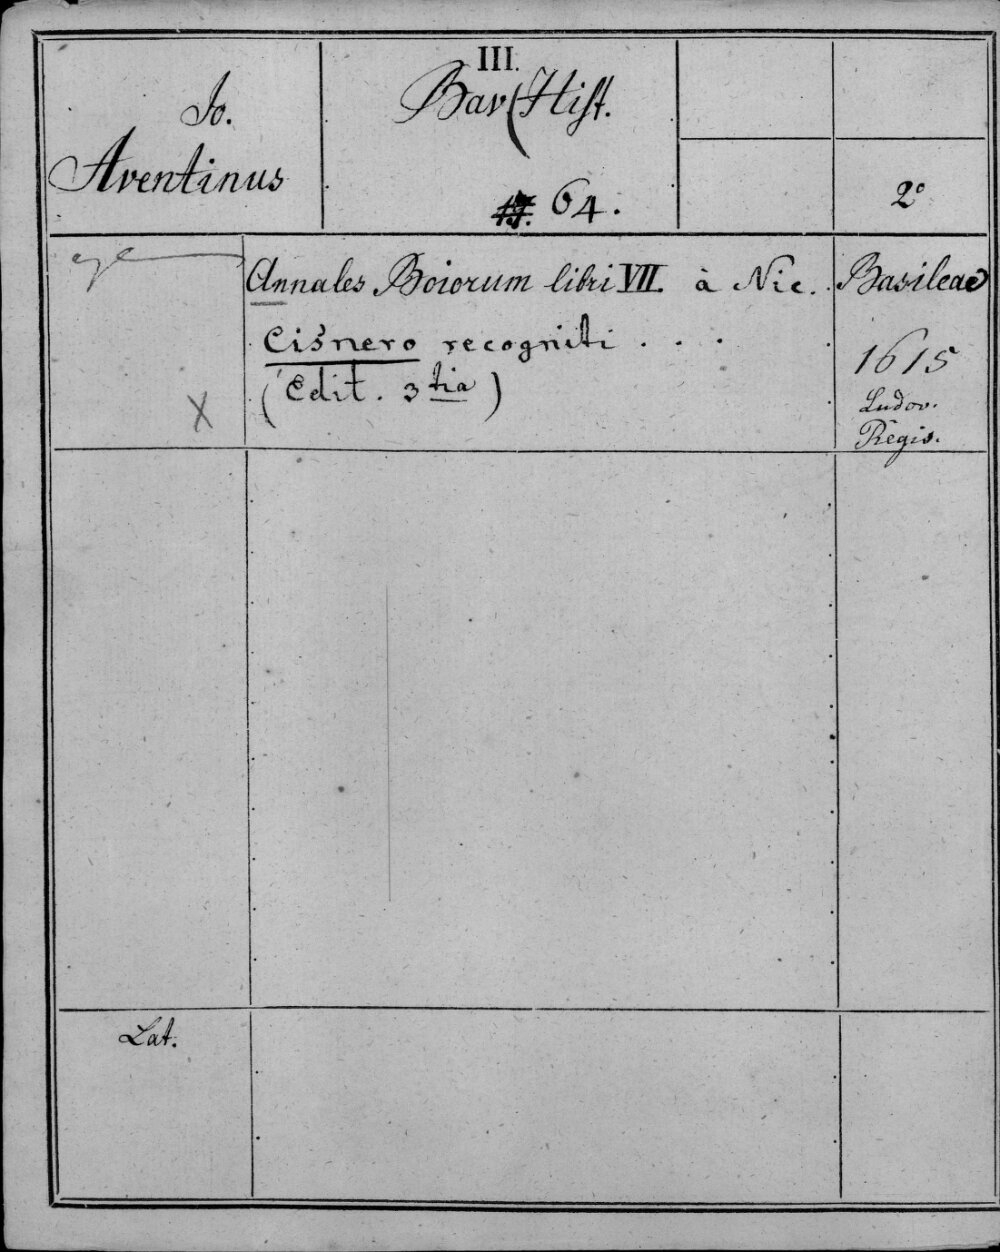 Jo.
Aventinus
III.
Bav. Hist.
64.
2°
Annales Boiorum libri VII. à Nic.
Cisnero recogniti . . .
(Edit. 3tia)
Basileae
1615
Ludov.
Regis.
X
Lat.